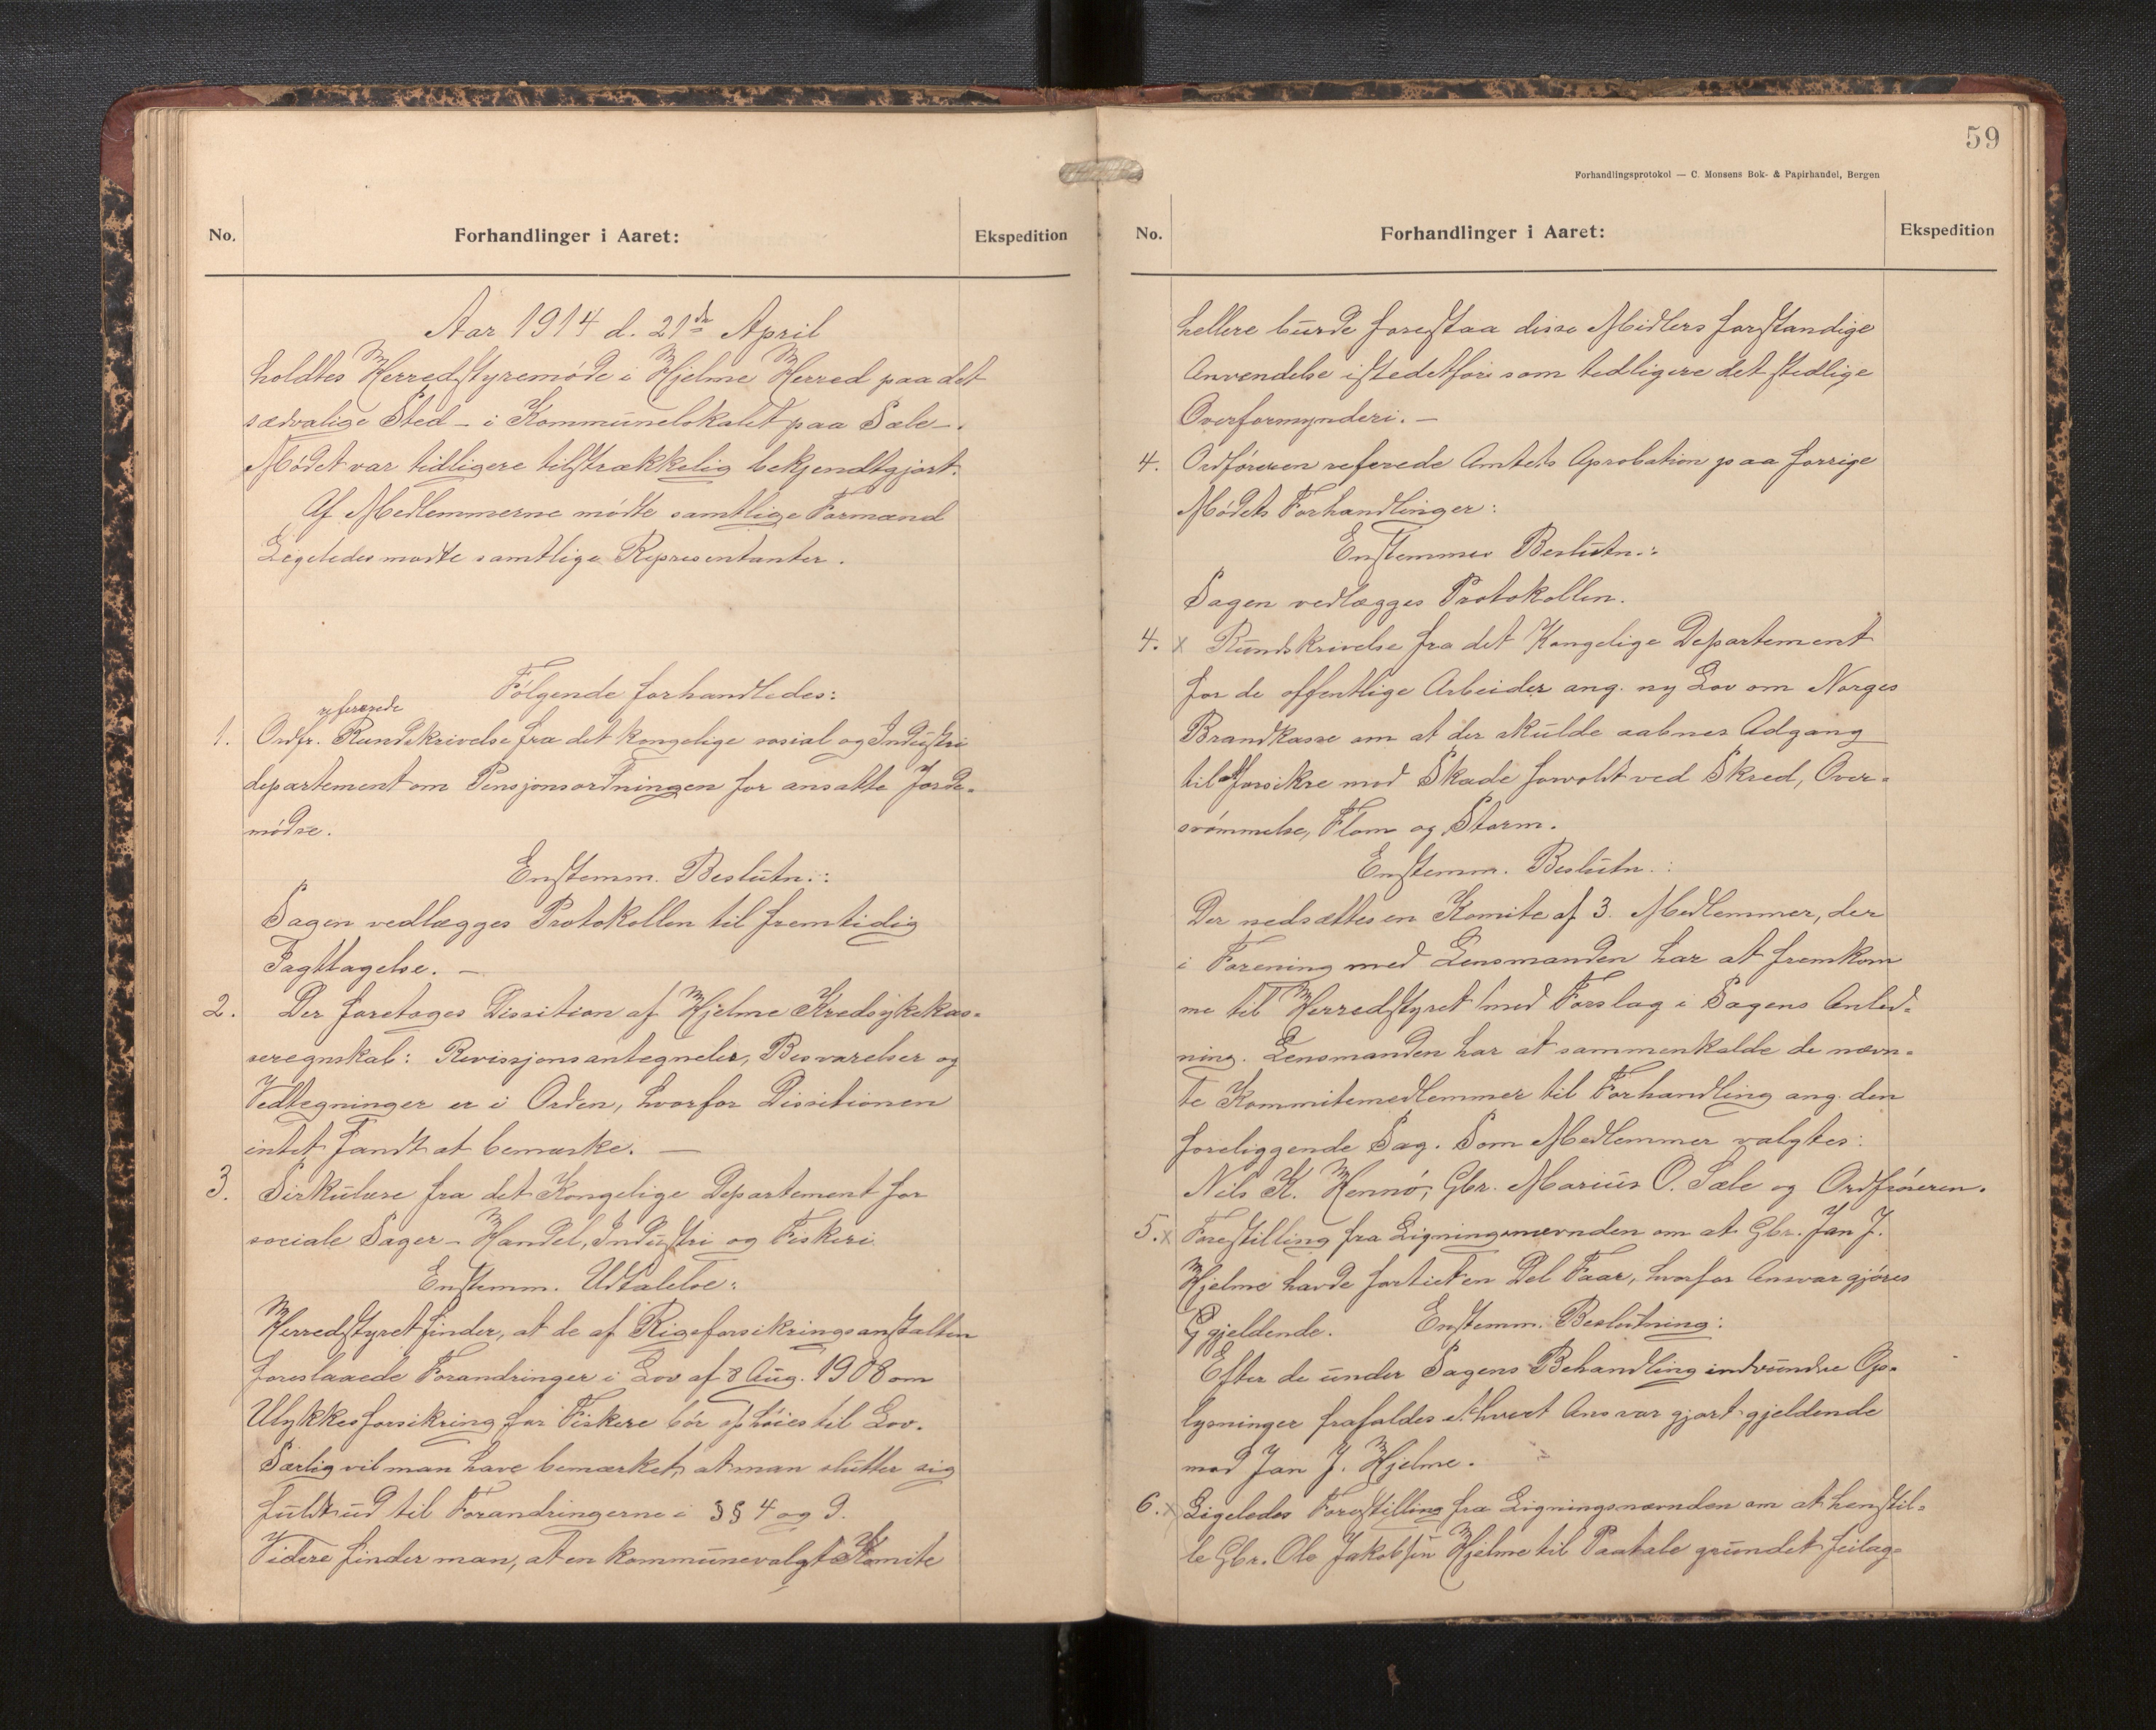 No.
Forhandlinger i Aaret:
Ekspedition
Aar 1914 d. 21de April
holdtes Herredstyremøde i Hjelme Herred paa det
sædvalige Sted – i Kommunelokalet paa Sæle –.
Mødet var tidligere tilstrækkelig bekjendtgjort.
Af Medlemmerne mødte samtlige Formænd
Ligeledes mødte samtlige Representanter.
Følgende forhandledes:
refererede
1. Ordfr. Rundskrivelse fra det kongelige sosial og Industri
departement om Pensjonsordningen for ansatte Jorde-
mødre.
Enstemm. Beslutn.:
Sagen vedlægges Protokollen til fremtidig
Iagttagelse. –
2. Der foretoges Dissition af Hjelme Kredsykekas-
seregnskab: Revissjonsantegnelser, Besvarelser og
Vedtegninger er i Orden, hvorfor Dissitionen
intet fandt at bemærke. –
3. Sirkulære fra det Kongelige Departement for
sociale Sager – Handel, Industri og Fiskeri
Enstemm. Udtalelse:
Herredstyret finder, at de af Rigsforsikringsanstalten
foreslaaede Forandringer i Lov af 8 Aug. 1908 om
Ulykkesforsikring for Fiskere bør ophøies til Lov.
Særlig vil man have bemærket, at man slutter sig
fuldt ud til Forandringerne i §§ 4 og 9.
Videre finder man, at en kommunevalgt Komite
59
Forhandlingsprotokol — C. Monsens Bok- & Papirhandel, Bergen
No.
Forhandlinger i Aaret:
Ekspedition
hellere burde forestaa disse Midlers forstandige
Anvendelse istedetfor som tedligere det stedlige
Overformynderi. –
4. Ordføreren referede Amtets Aprobation paa forrige
Mødets Forhandlinger:
Enstemmes Beslutn.:
Sagen vedlægges Protokollen.
4. x Rundskrivelse fra det Kongelige Departement
for de offentlige Arbeider ang. ny Lov om Norges
Brandkasse om at der skulde aabnes Adgang
til at forsikre mod Skade forvoldt ved Skred, Over-
svømmelse, Flom og Storm.
Enstemm. Beslutn.:
Der nedsættes en Komite af 3. Medlemmer, der
i Forening med Lensmanden har at fremkom
me til Herredstyret med Forslag i Sagens Anled-
ning. Lensmanden har at sammenkalde de nævn-
te Kommitemedlemmer til Forhandling ang. den
foreliggende Sag. Som Medlemmer valgtes:
Nils K. Hennø, Gbr. Marius O. Sæle og Ordføreren.
5. x Forestilling fra Ligningsnævnden om at Gbr. Jan J.
Hjelme havde fortiet en Del Faar, hvorfor Ansvar gjøres
gjeldende. Enstemm. Beslutning:
Efter de under Sagens Behandling indvundne Op-
lysninger frafaldes ethvert Ansvar gjort gjeldende
mod Jan J. Hjelme.
6. x Ligeledes Forestilling fra Ligningsnævnden om at henstil-
le Gbr. Ole Jakobsen Hjelme til Paatale grundet feilag-